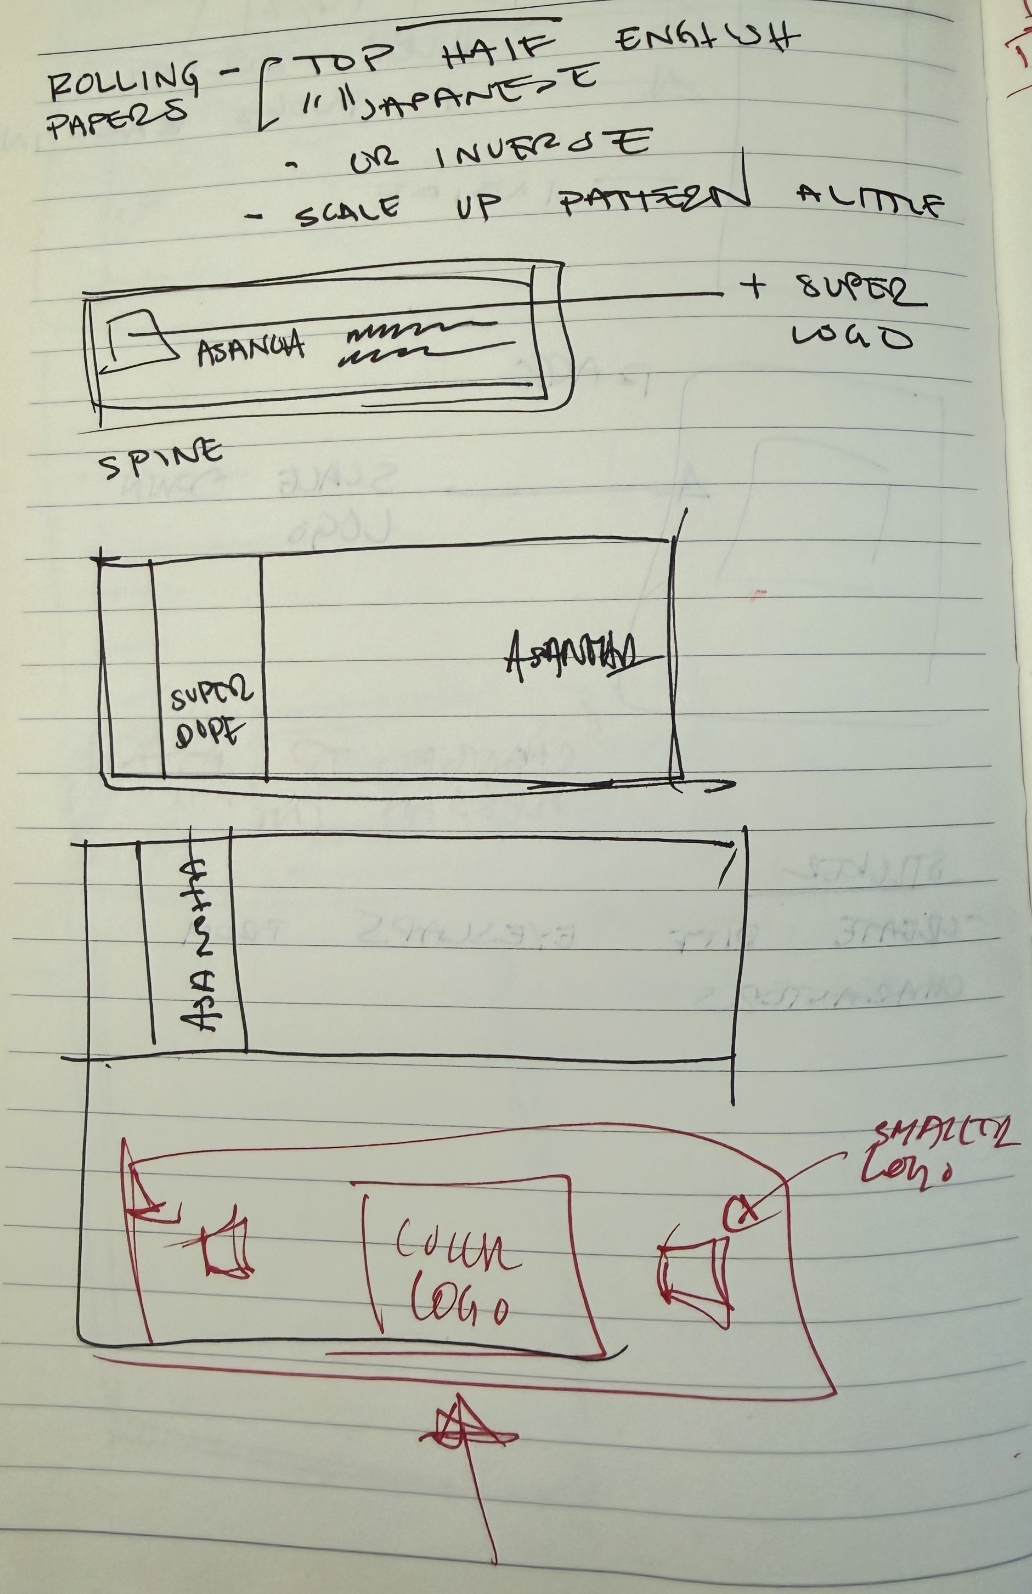 ROLLING - TOP HALF ENGLISH
PAPERS " " JAPANESE
- OR INVERSE
- SCALE UP PATTERN A LITTLE
+ SUPER
LOGO
ASANOHA
SPINE
SUPER
DOPE
ASANOHA
SMALLER
LOGO
LOGO